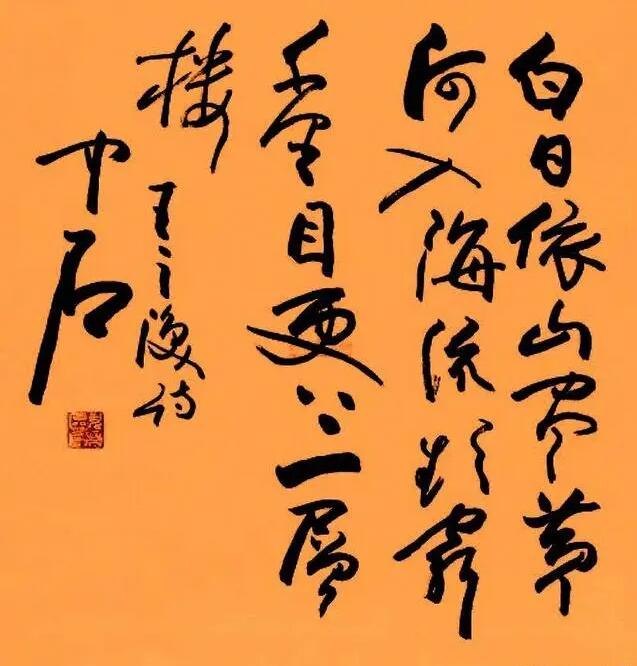 白日依山盡黄
河入海流欲窮
千里目更上一層
楼 王之渙詩
中石